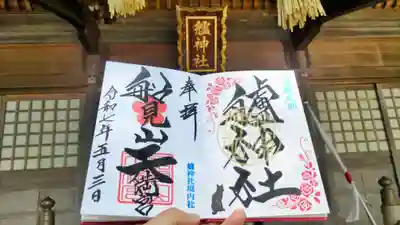 艫神社
奉拝
船見山天満宮
令和七年五月三日
艫神社境内社
艫神社